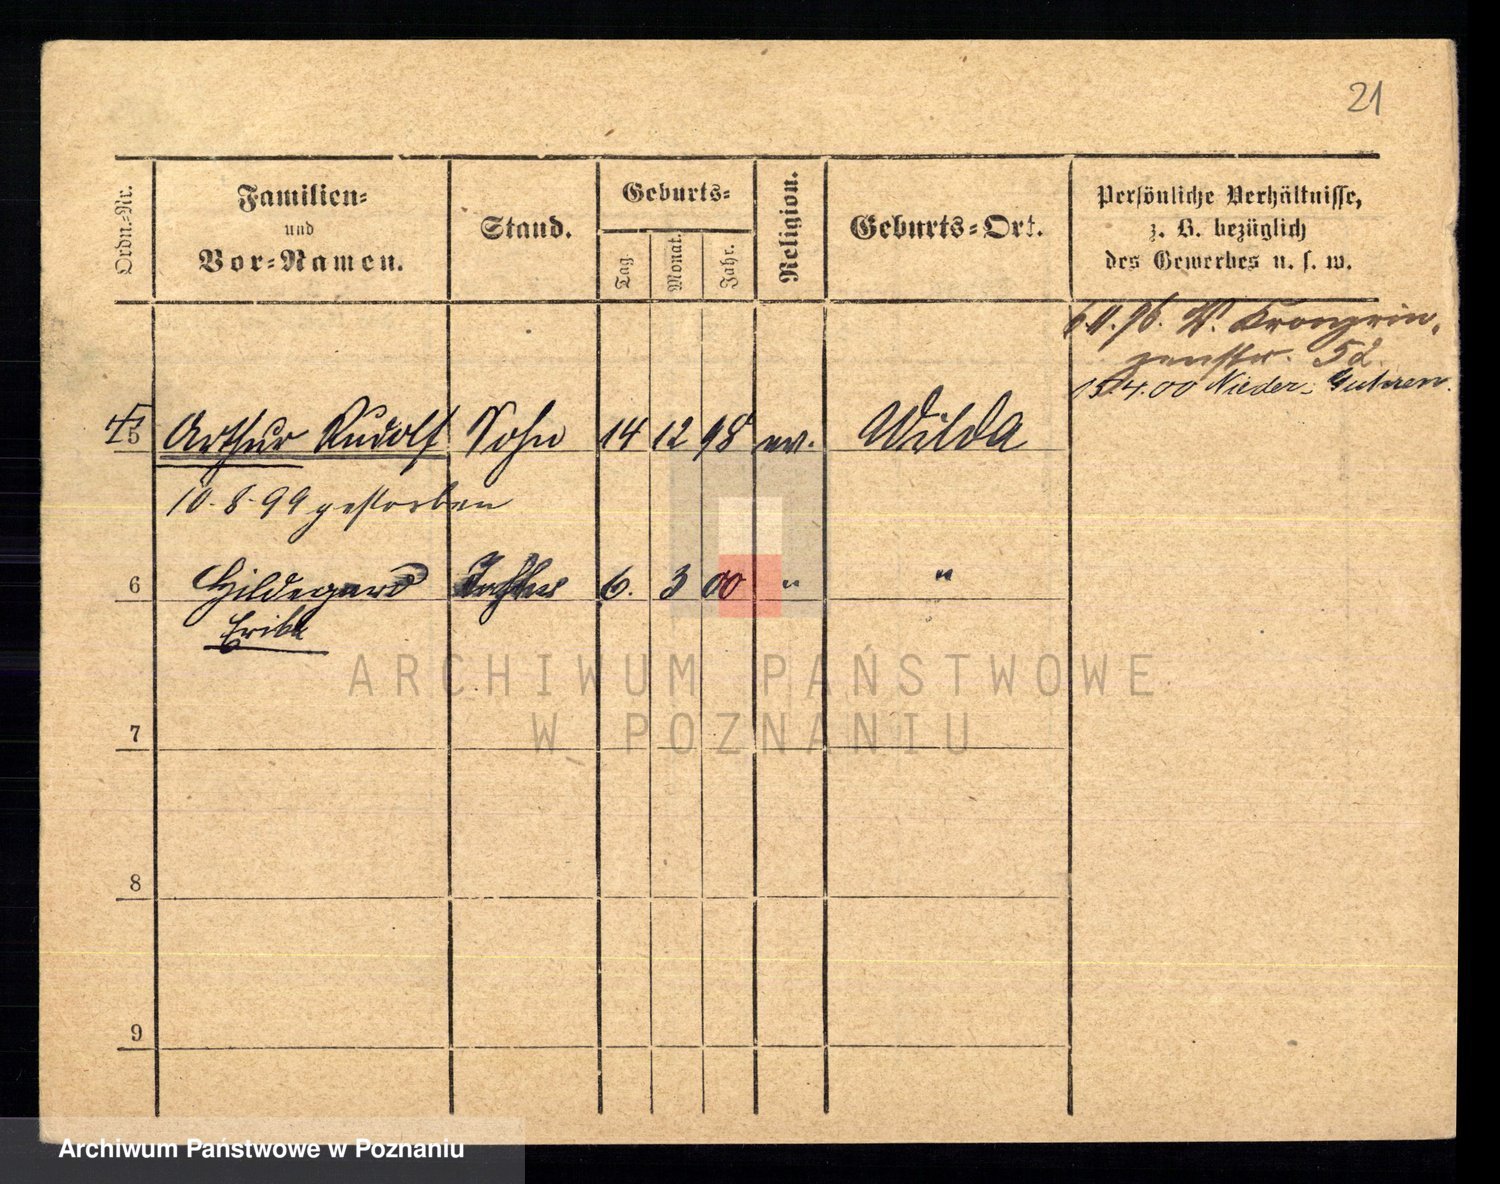 21
Ordn.-Nr.
Familien-
und
Vor-Namen.
Stand.
Geburts-
Tag.
Monat.
Jahr.
Religion.
Geburts-Ort.
Persönliche Verhältnisse,
z. B. bezüglich
des Gewerbes u. s. w.
W. Kronprin-
zenstr. 52.
15.4.00 Nieder-
5 Arthur Rudolf Sohn 14 12 98 ev. Wilda
10.8.99 gestorben
6 Hildegard Tochter 6. 3 00 " "
Erika
ARCHIWUM PAŃSTWOWE
W POZNANIU
7
8
9
Archiwum Państwowe w Poznaniu